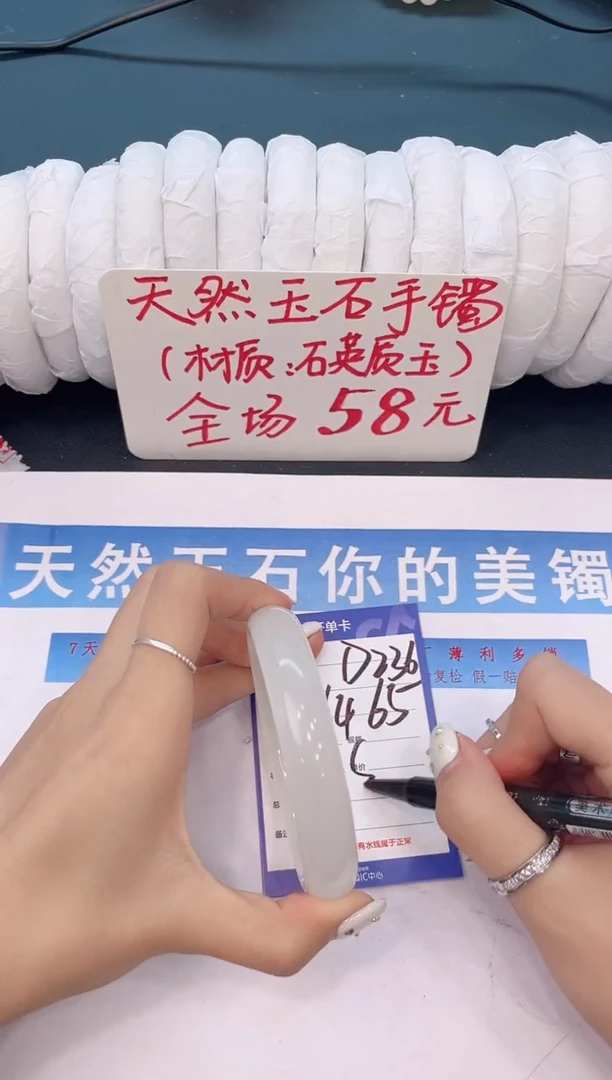 天然玉石手镯
(材质:石英质玉)
全场 58元
天然玉石你的美镯
7天
薄利多销
复检 假一赔
单卡
D236
465
单价
总
备注
有水线属于正常
QIC中心
美术